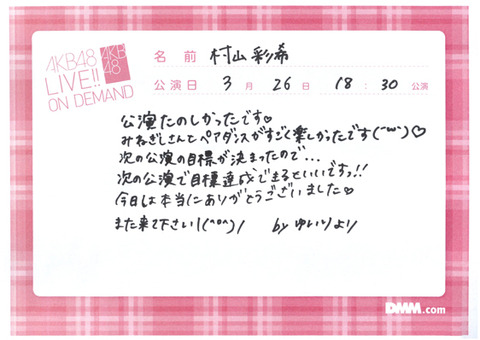 AKB48
LIVE!!
ON DEMAND
AKB
48
名 前 村山彩希
公演日 3 月 26 日 18 : 30 公演
公演たのしかったです♡
みねぎしさんとペアダンスがすごく楽しかったです(˘ω˘)♡
次の公演の目標が決まったので...
次の公演で目標達成できるといいですっ!!
今日は本当にありがとうございました♡
また来て下さい!(^o^)/ by ゆいりより
DMM.com